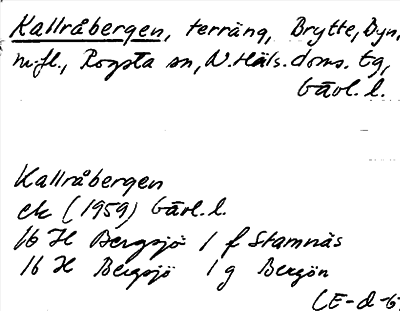 Kallråbergen, terräng, Brytte, Byn,
m.fl., Rogsta sn, N.Häls. doms. tg,
Gävl. l.
Kallråbergen
ek (1959) Gävl. l.
16 H Bergsjö 1 f Stamnäs
16 H Bergsjö 1 g Bergön
(E-d-6